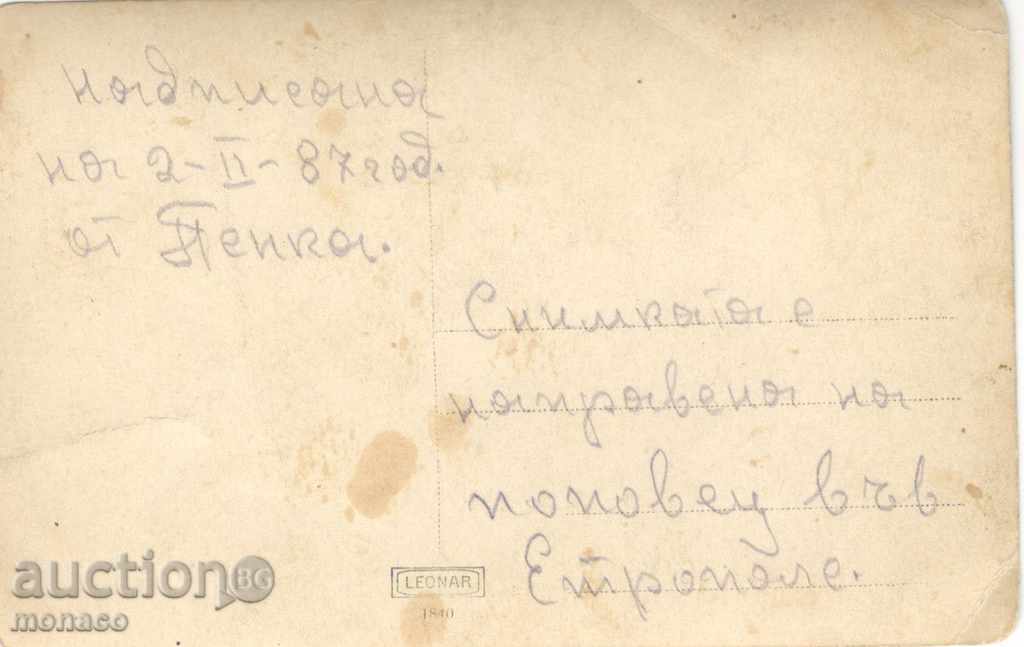 надписана
на 2-II-87 год.
от Пенка.
Снимката е
направена на
поповец във
Етрополе.
LEONAR
1840
auctionBG
monaco